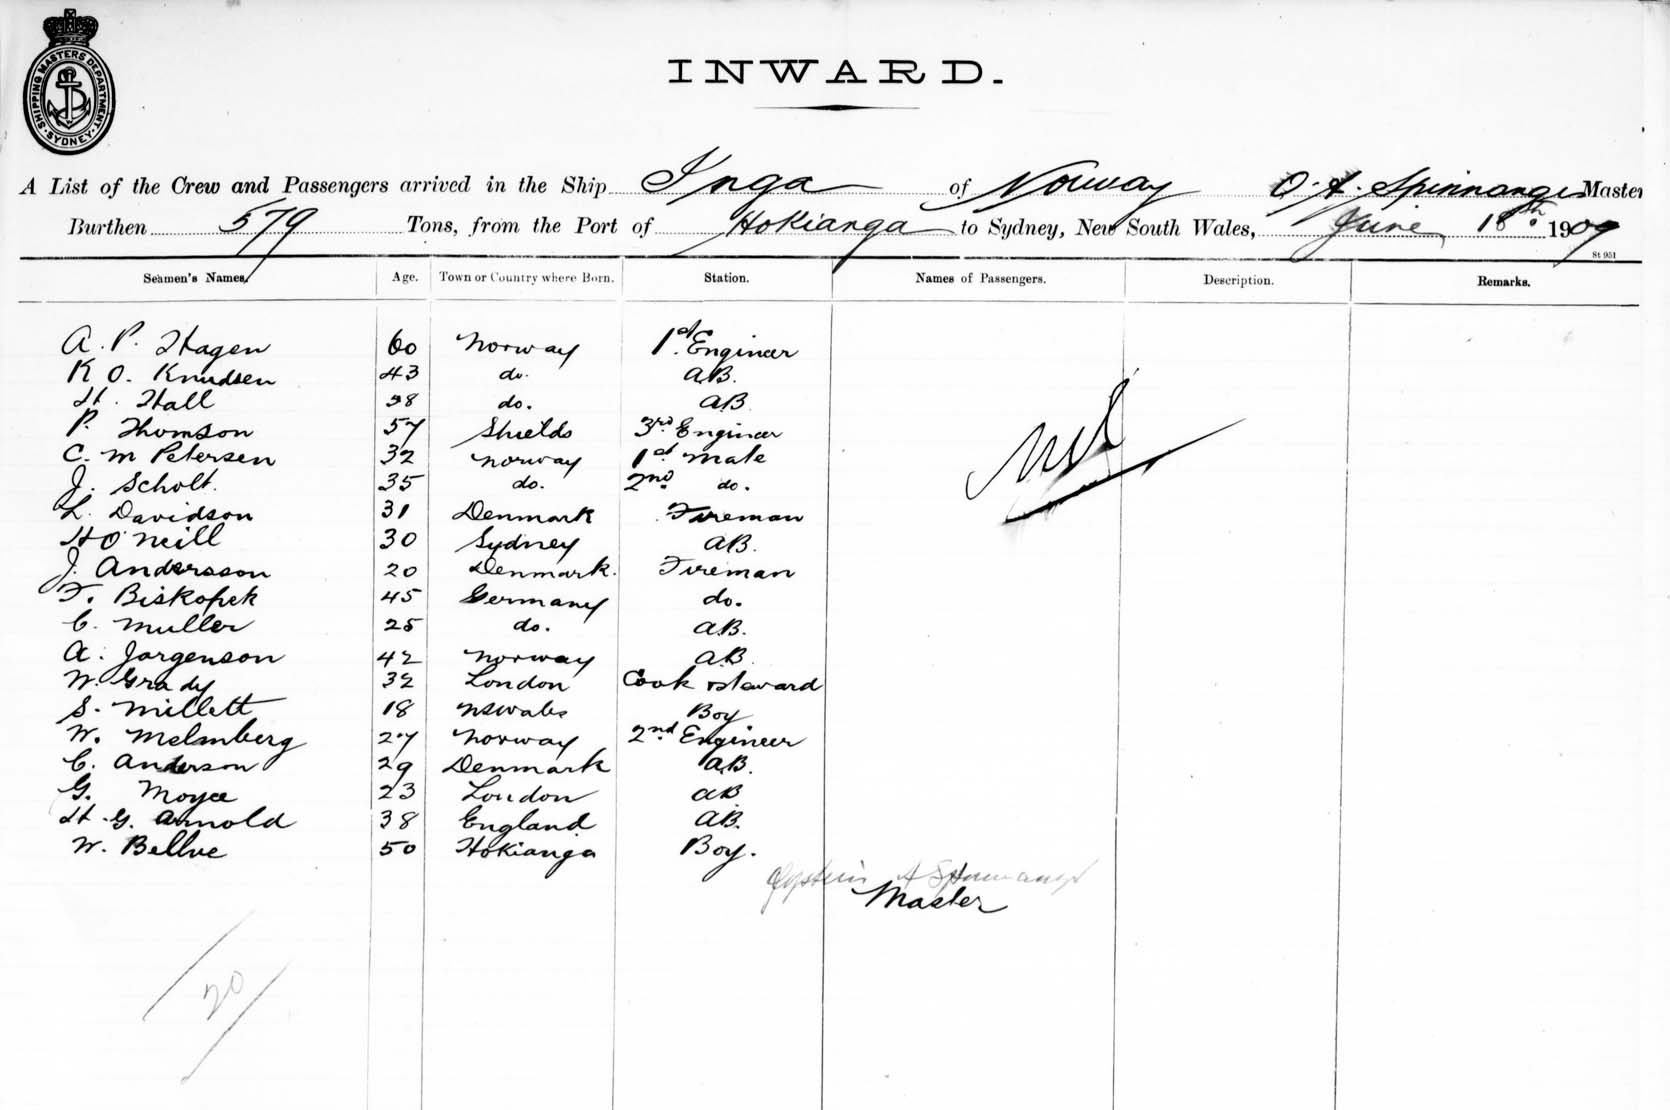 SHIPPING MASTERS DEPARTMENT. SYDNEY
INWARD.
A List of the Crew and Passengers arrived in the Ship Inga of Norway O. A. Spinnanger Master
Burthen 579 Tons, from the Port of Hokianga to Sydney, New South Wales, June 18th 1909
St 951
Seamen's Names. Age. Town or Country where Born. Station. Names of Passengers. Description. Remarks.
A. P. Hagen 60 Norway 1st Engineer
K O. Knudsen 43 do. AB.
H. Hall 38 do. AB
P. Thomson 57 Shields 3rd Engineer
C. M Petersen 32 Norway 1st Mate
J. Scholt. 35 do. 2nd do.
L. Davidson 31 Denmark Fireman
H O'Neill 30 Sydney AB.
J. Andersson 20 Denmark. Fireman
F. Biskopek 45 Germany do.
C. Muller 25 do. AB.
A. Jorgenson 42 Norway AB.
W. Grady 32 London Cook Steward
S. Millett 18 NSWales Boy
W. Melmberg 27 Norway 2nd Engineer
C. Anderson 29 Denmark AB.
G. Moyce 23 London AB
H. G. Arnold 38 England AB.
W. Bellve 50 Hokianga Boy.
Nil
Master
20